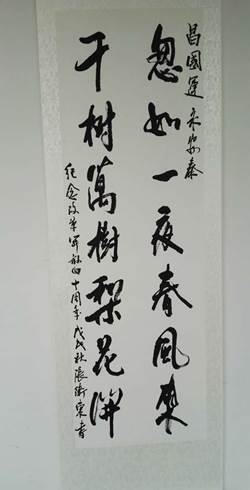 昌國運永安泰
忽如一夜春風來
千树萬樹梨花開
紀念改革開放四十周年戊戌秋張衛東書